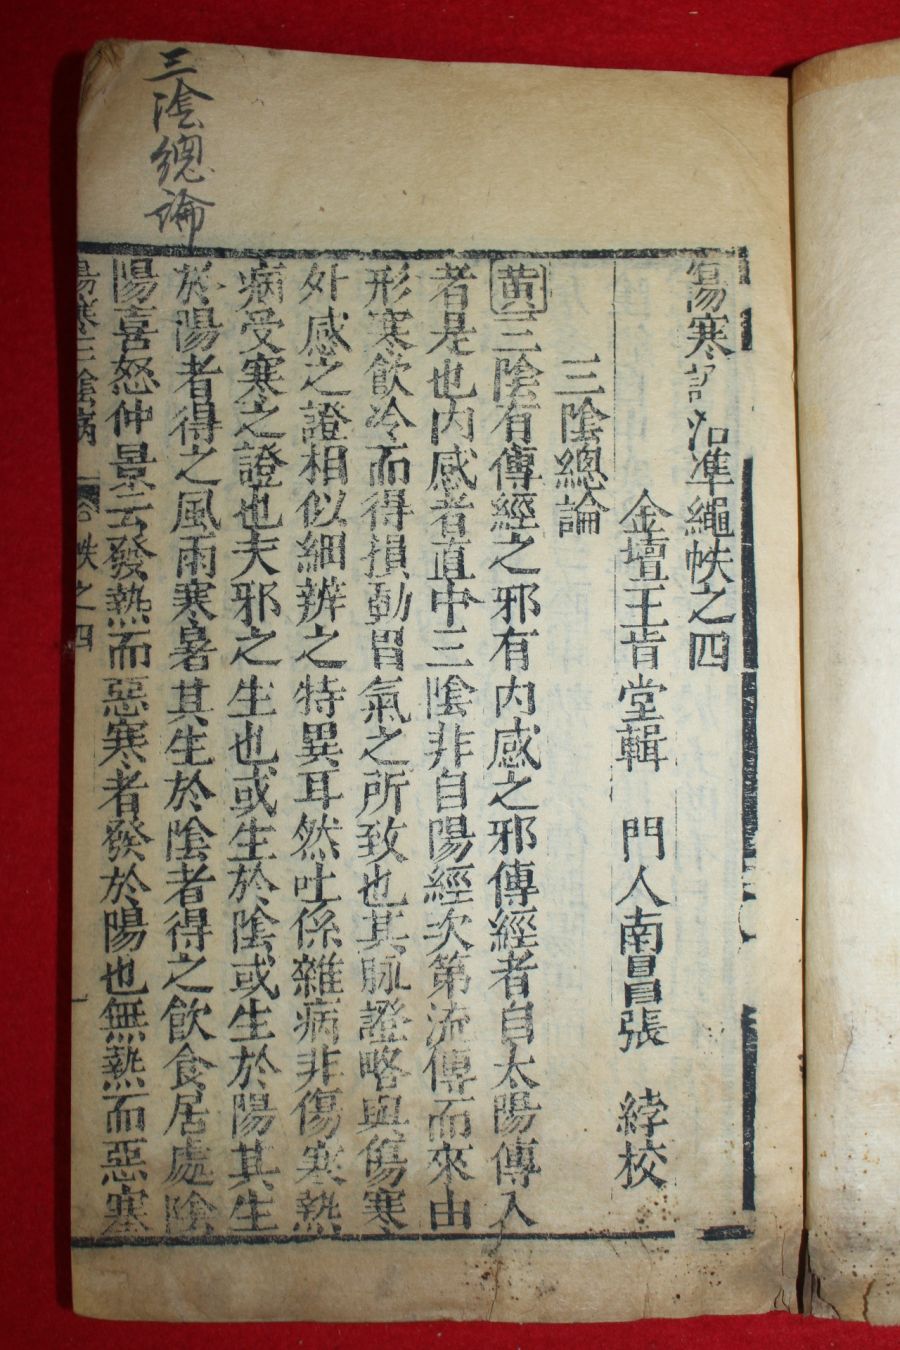 三陰總論
傷寒證治準繩帙之四
金壇王肯堂輯 門人南昌張 綍校
三陰總論
黄三陰有傳經之邪有内感之邪傳經者自太陽傳入
者是也内感者直中三陰非自陽經次第流傳而來由
形寒飲冷而得損動胃氣之所致也其脉證略與傷寒
外感之證相似細辨之特異耳然吐係雜病非傷寒熱
病受寒之證也夫邪之生也或生於陰或生於陽其生
於陽者得之風雨寒暑其生於陰者得之飲食居處陰
陽喜怒仲景云發熱而惡寒者發於陽也無熱而惡寒
傷寒三陰病 帙之四 一